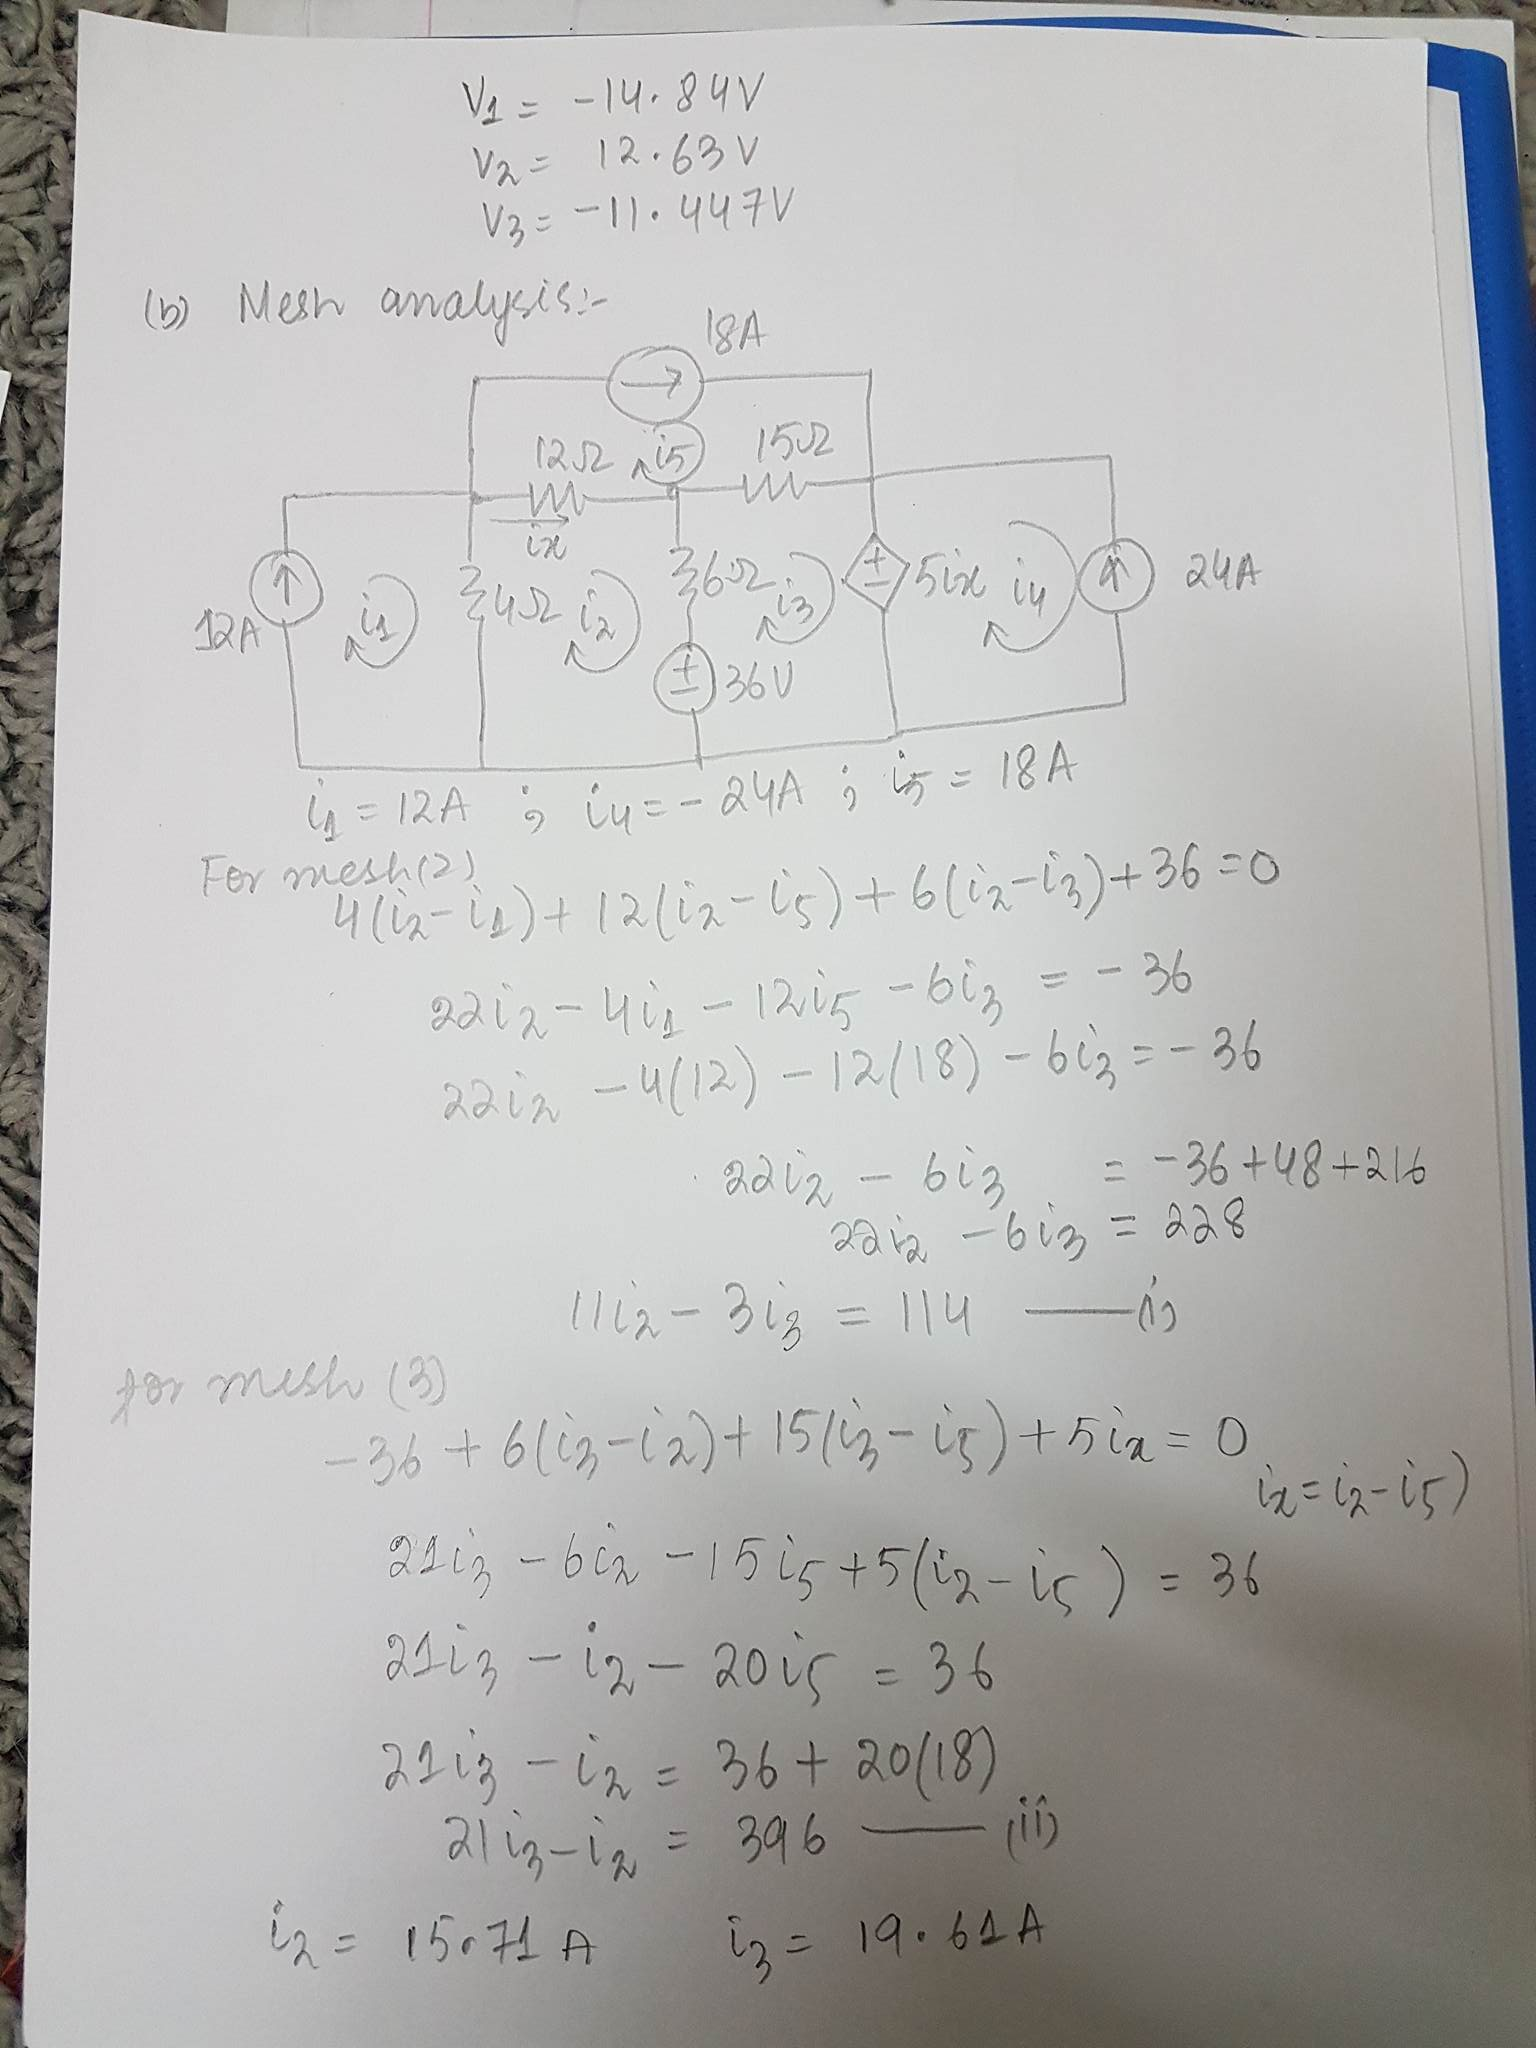 V1 = -14.84V
V2 = 12.63V
V3 = -11.447V
(b) Mesh analysis:-
18A
12Ω i5 15Ω
ix
12A i1 4Ω i2 6Ω i3 5ix i4 24A
36V
i1 = 12A ; i4 = -24A ; i5 = 18A
For mesh(2)
4(i2-i1) + 12(i2-i5) + 6(i2-i3) + 36 = 0
22i2 - 4i1 - 12i5 - 6i3 = -36
22i2 - 4(12) - 12(18) - 6i3 = -36
22i2 - 6i3 = -36+48+216
22i2 - 6i3 = 228
11i2 - 3i3 = 114 —(i)
for mesh (3)
-36 + 6(i3-i2) + 15(i3-i5) + 5ix = 0
ix = i2-i5)
21i3 - 6i2 - 15i5 + 5(i2-i5) = 36
21i3 - i2 - 20i5 = 36
21i3 - i2 = 36 + 20(18)
21i3 - i2 = 396 —(ii)
i2 = 15.71A i3 = 19.61A